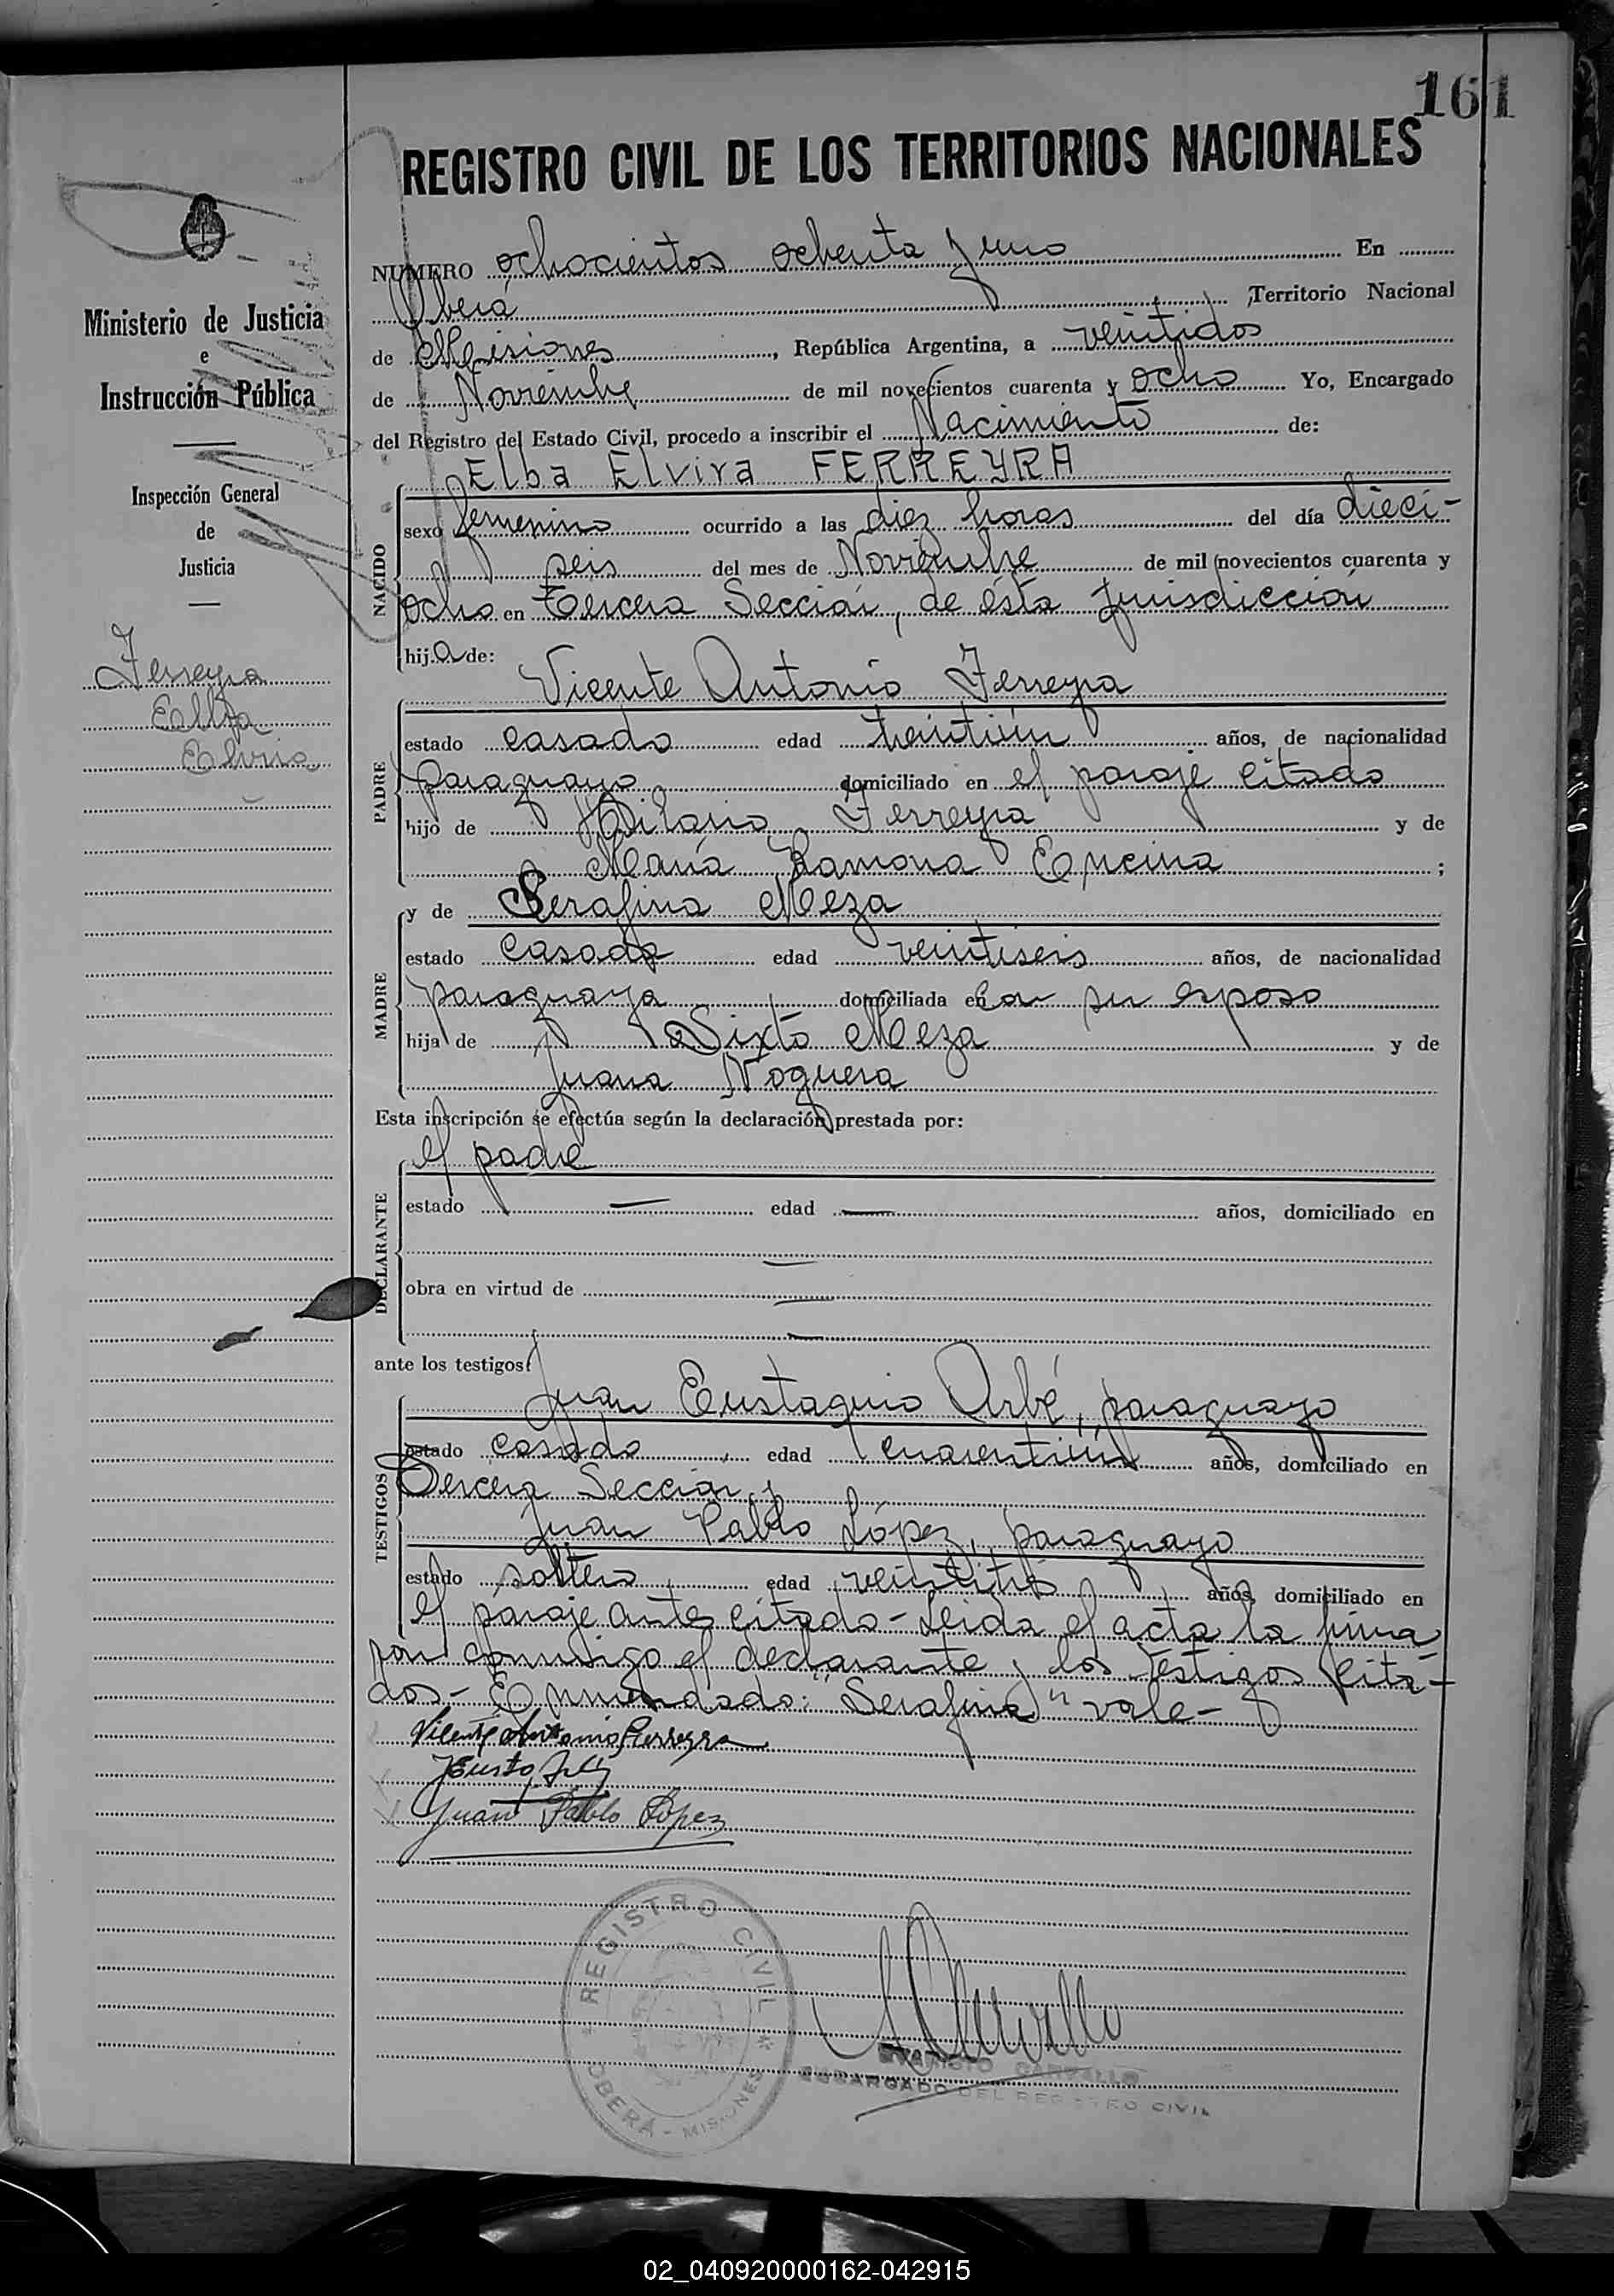 161
REGISTRO CIVIL DE LOS TERRITORIOS NACIONALES
Ministerio de Justicia
e
Instrucción Pública
Inspección General
de
Justicia
Ferreyra
Elba
Elvira
NUMERO ochocientos ochenta y uno En
Oberá Territorio Nacional
de Misiones, República Argentina, a veintidos
de Noviembre de mil novecientos cuarenta y ocho Yo, Encargado
del Registro del Estado Civil, procedo a inscribir el Nacimiento de:
Elba Elvira FERREYRA
NACIDO
sexo femenino ocurrido a las diez horas del día dieci-
seis del mes de Noviembre de mil novecientos cuarenta y
ocho en Tercera Sección, de ésta jurisdicción
hija de:
Vicente Antonio Ferreyra
PADRE
estado casado edad treintiún años, de nacionalidad
paraguayo domiciliado en el paraje citado
hijo de Hilario Ferreyra y de
María Ramona Encina ;
y de Serafina Meza
MADRE
estado casada edad veintiseis años, de nacionalidad
paraguaya domiciliada en con su esposo
hija de Sixto Meza y de
Juana Noguera
Esta inscripción se efectúa según la declaración prestada por:
el padre
DECLARANTE
estado — edad — años, domiciliado en
—
obra en virtud de —
—
ante los testigos:
Juan Eustaquio Arbé, paraguayo
TESTIGOS
estado casado, edad cuarentiún años, domiciliado en
Tercera Sección y
Juan Pablo López, paraguayo
estado soltero, edad veintitrés años, domiciliado en
el paraje antes citado - Leida el acta la firma
ron conmigo el declarante y los testigos cita-
dos - Enmendado: "Serafina" vale -
Vicente Antonio Ferreyra
Juan Pablo López
REGISTRO CIVIL
OBERÁ - MISIONES
EVARISTO CARVALLO
ENCARGADO DEL REGISTRO CIVIL
02_040920000162-042915